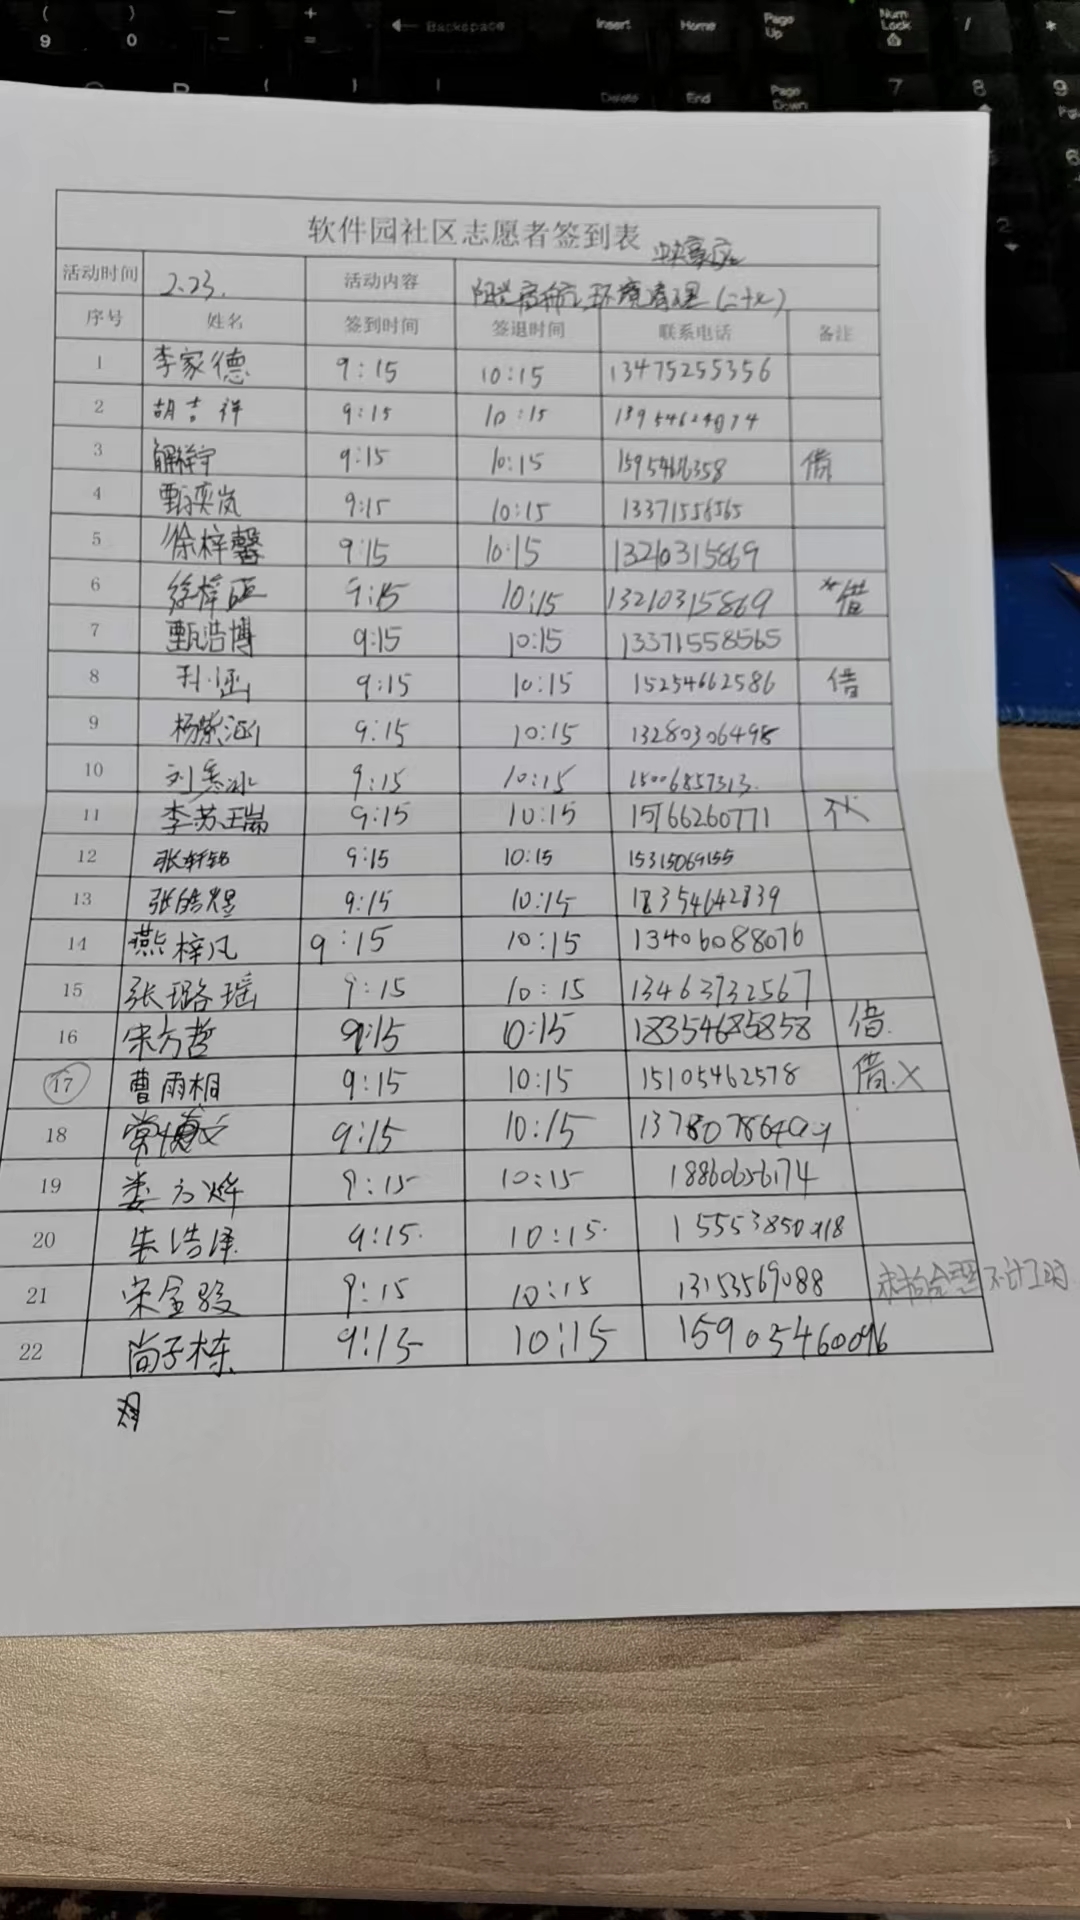 ( ) - + ← Backspace Insert Home Page Up Num Lock / *
9 0 _ =
Delete End Page Down 7 8 9
软件园社区志愿者签到表
活动时间 2.23. 活动内容 环境清理
序号 姓名 签到时间 签退时间 联系电话 备注
1 李家德 9:15 10:15 13475255356
2 胡吉祥 9:15 10:15
3 解梓宁 9:15 10:15 借
4 甄奕岚 9:15 10:15 13371558565
5 徐梓馨 9:15 10:15 13210315869
6 徐梓 9:15 10:15 13210315869 *借
7 甄浩博 9:15 10:15 13371558565
8 孙涵 9:15 10:15 15254662586 借
9 杨紫涵 9:15 10:15 13280306498
10 刘 冰 9:15 10:15 15006857313.
11 李苏瑞 9:15 10:15 15166260771
12 张轩铭 9:15 10:15 15315069155
13 张皓煜 9:15 10:15 18354642839
14 燕梓凡 9:15 10:15 13406088076
15 张璐瑶 9:15 10:15 13463732567
16 宋方哲 9:15 10:15 18354685858 借.
17 曹雨桐 9:15 10:15 15105462578 借.X
18 常博文 9:15 10:15
19 娄 烨 9:15 10:15 18860656174
20 朱浩泽 9:15. 10:15.
21 宋金骏 9:15 10:15 13153569088 不计工时
22 尚子栋 9:15 10:15 15905460096